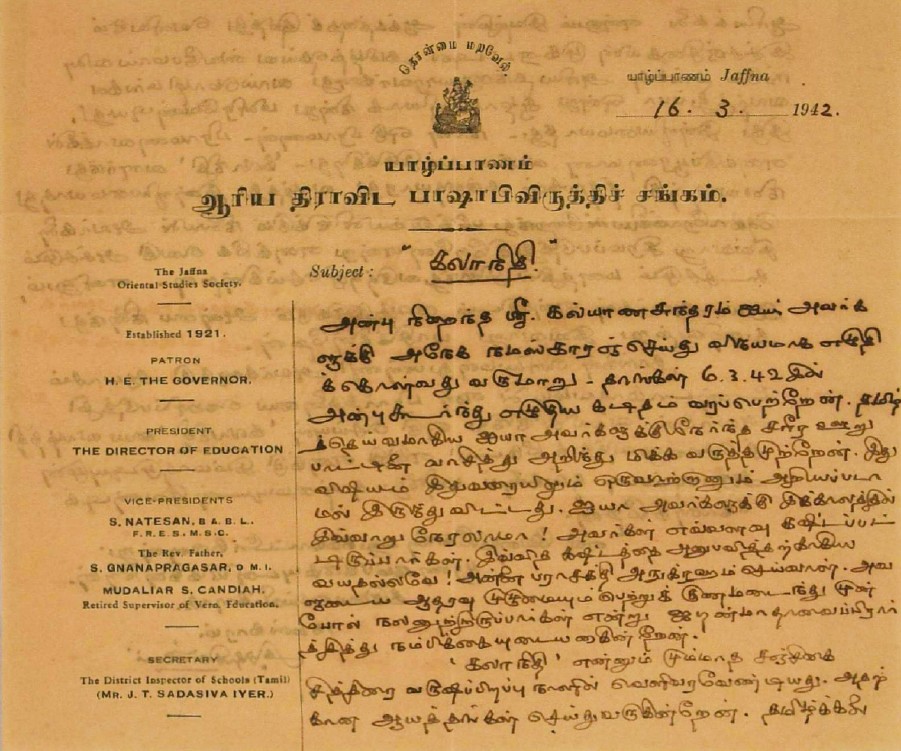 தொன்மை மறவேல்
யாழ்ப்பாணம் Jaffna
16. 3. 1942.
யாழ்ப்பாணம்
ஆரிய திராவிட பாஷாபிவிருத்திச் சங்கம்.
The Jaffna
Oriental Studies Society.
Established 1921.
PATRON
H. E. THE GOVERNOR.
PRESIDENT
THE DIRECTOR OF EDUCATION
VICE-PRESIDENTS
S. NATESAN, B A. B. L.,
F. R. E S., M. S. C.
The Rev. Father,
S. GNANAPRAGASAR, O M. I.
MUDALIAR S. CANDIAH.
Retired Supervisor of Vern. Education.
SECRETARY
The District Inspector of Schools (Tamil)
(MR. J. T. SADASIVA IYER.)
Subject: "கலாநிதி."
அன்பு நிறைந்த ஸ்ரீ. கல்யாணசுந்தரம் ஐயர் அவர்க
ளுக்கு அநேக நமஸ்காரஞ் செய்து விநயமாக எழுதி
க்கொள்வது வருமாறு - தாங்கள் 6.3.42இல்
அன்புகூர்ந்து எழுதிய கடிதம் வரப்பெற்றேன். தமிழ்
த்தெய்வமாகிய ஐயா அவர்களுக்கு நேர்ந்த சரீர ஊறு
பாட்டினை வாசித்து அறிந்து மிக்க வருத்தமுற்றேன். இது
விஷயம் இதுவரையிலும் ஒருவற்றானும் அறியப்படா
மல் இருந்து விட்டது. ஐயா அவர்களுக்கு இக்காலத்தில்
இவ்வாறு நேரலாமா! அவர்கள் எவ்வளவு கஷ்டப்பட்
டிருப்பார்கள். இவ்வித கஷ்டத்தை அனுபவித்தற்குரிய
வயதல்லவே! அன்னை பராசக்தி அநுக்ரஹம் செய்வாள். அவ
ளுடைய ஆதரவு முழுமையும் பெற்றுக் குணமடைந்து முன்
போல் நலனுற்றிருப்பார்கள் என்று ஜகன்மாதாவைப் பிரார்
த்தித்து நம்பிக்கையுடையனாகின்றேன்.
'கலாநிதி' என்னும் மும்மாத சஞ்சிகை
சித்திரை வருஷப்பிறப்பு நாளில் வெளிவரவேண்டியது. அதற்
கான ஆயத்தங்கள் செய்துவருகின்றேன். தமிழ்க்கலை